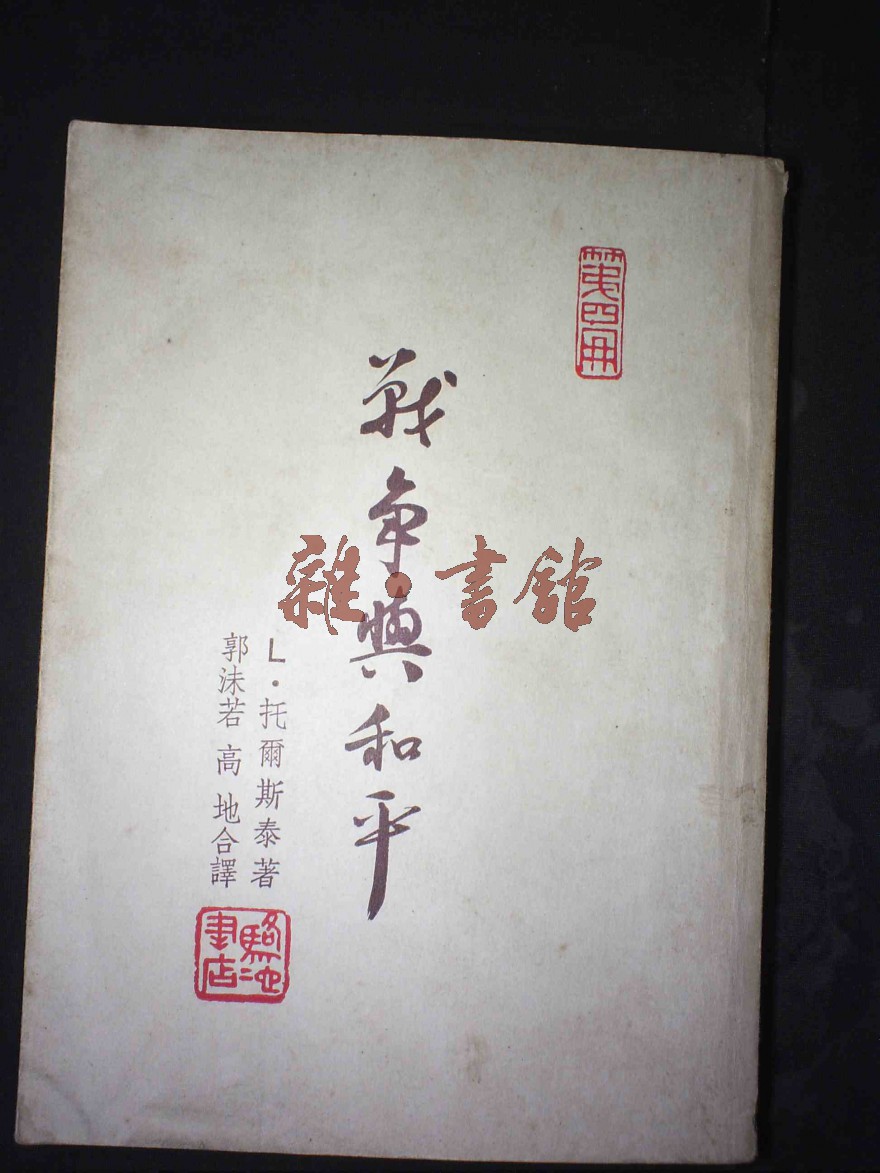 第四冊
戰爭與和平
雜·書館
L·托爾斯泰著
郭沫若 高 地合譯
駱駝書店